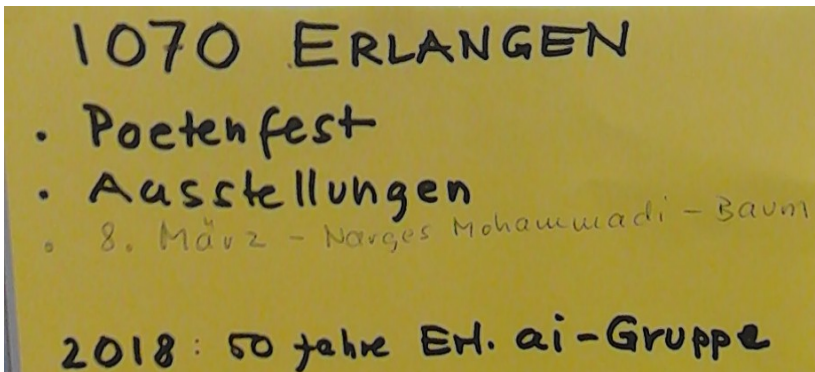 1070 ERLANGEN
• Poetenfest
• Ausstellungen
• 8. März - Narges Mohammadi - Baum
2018: 50 Jahre Erl. ai-Gruppe